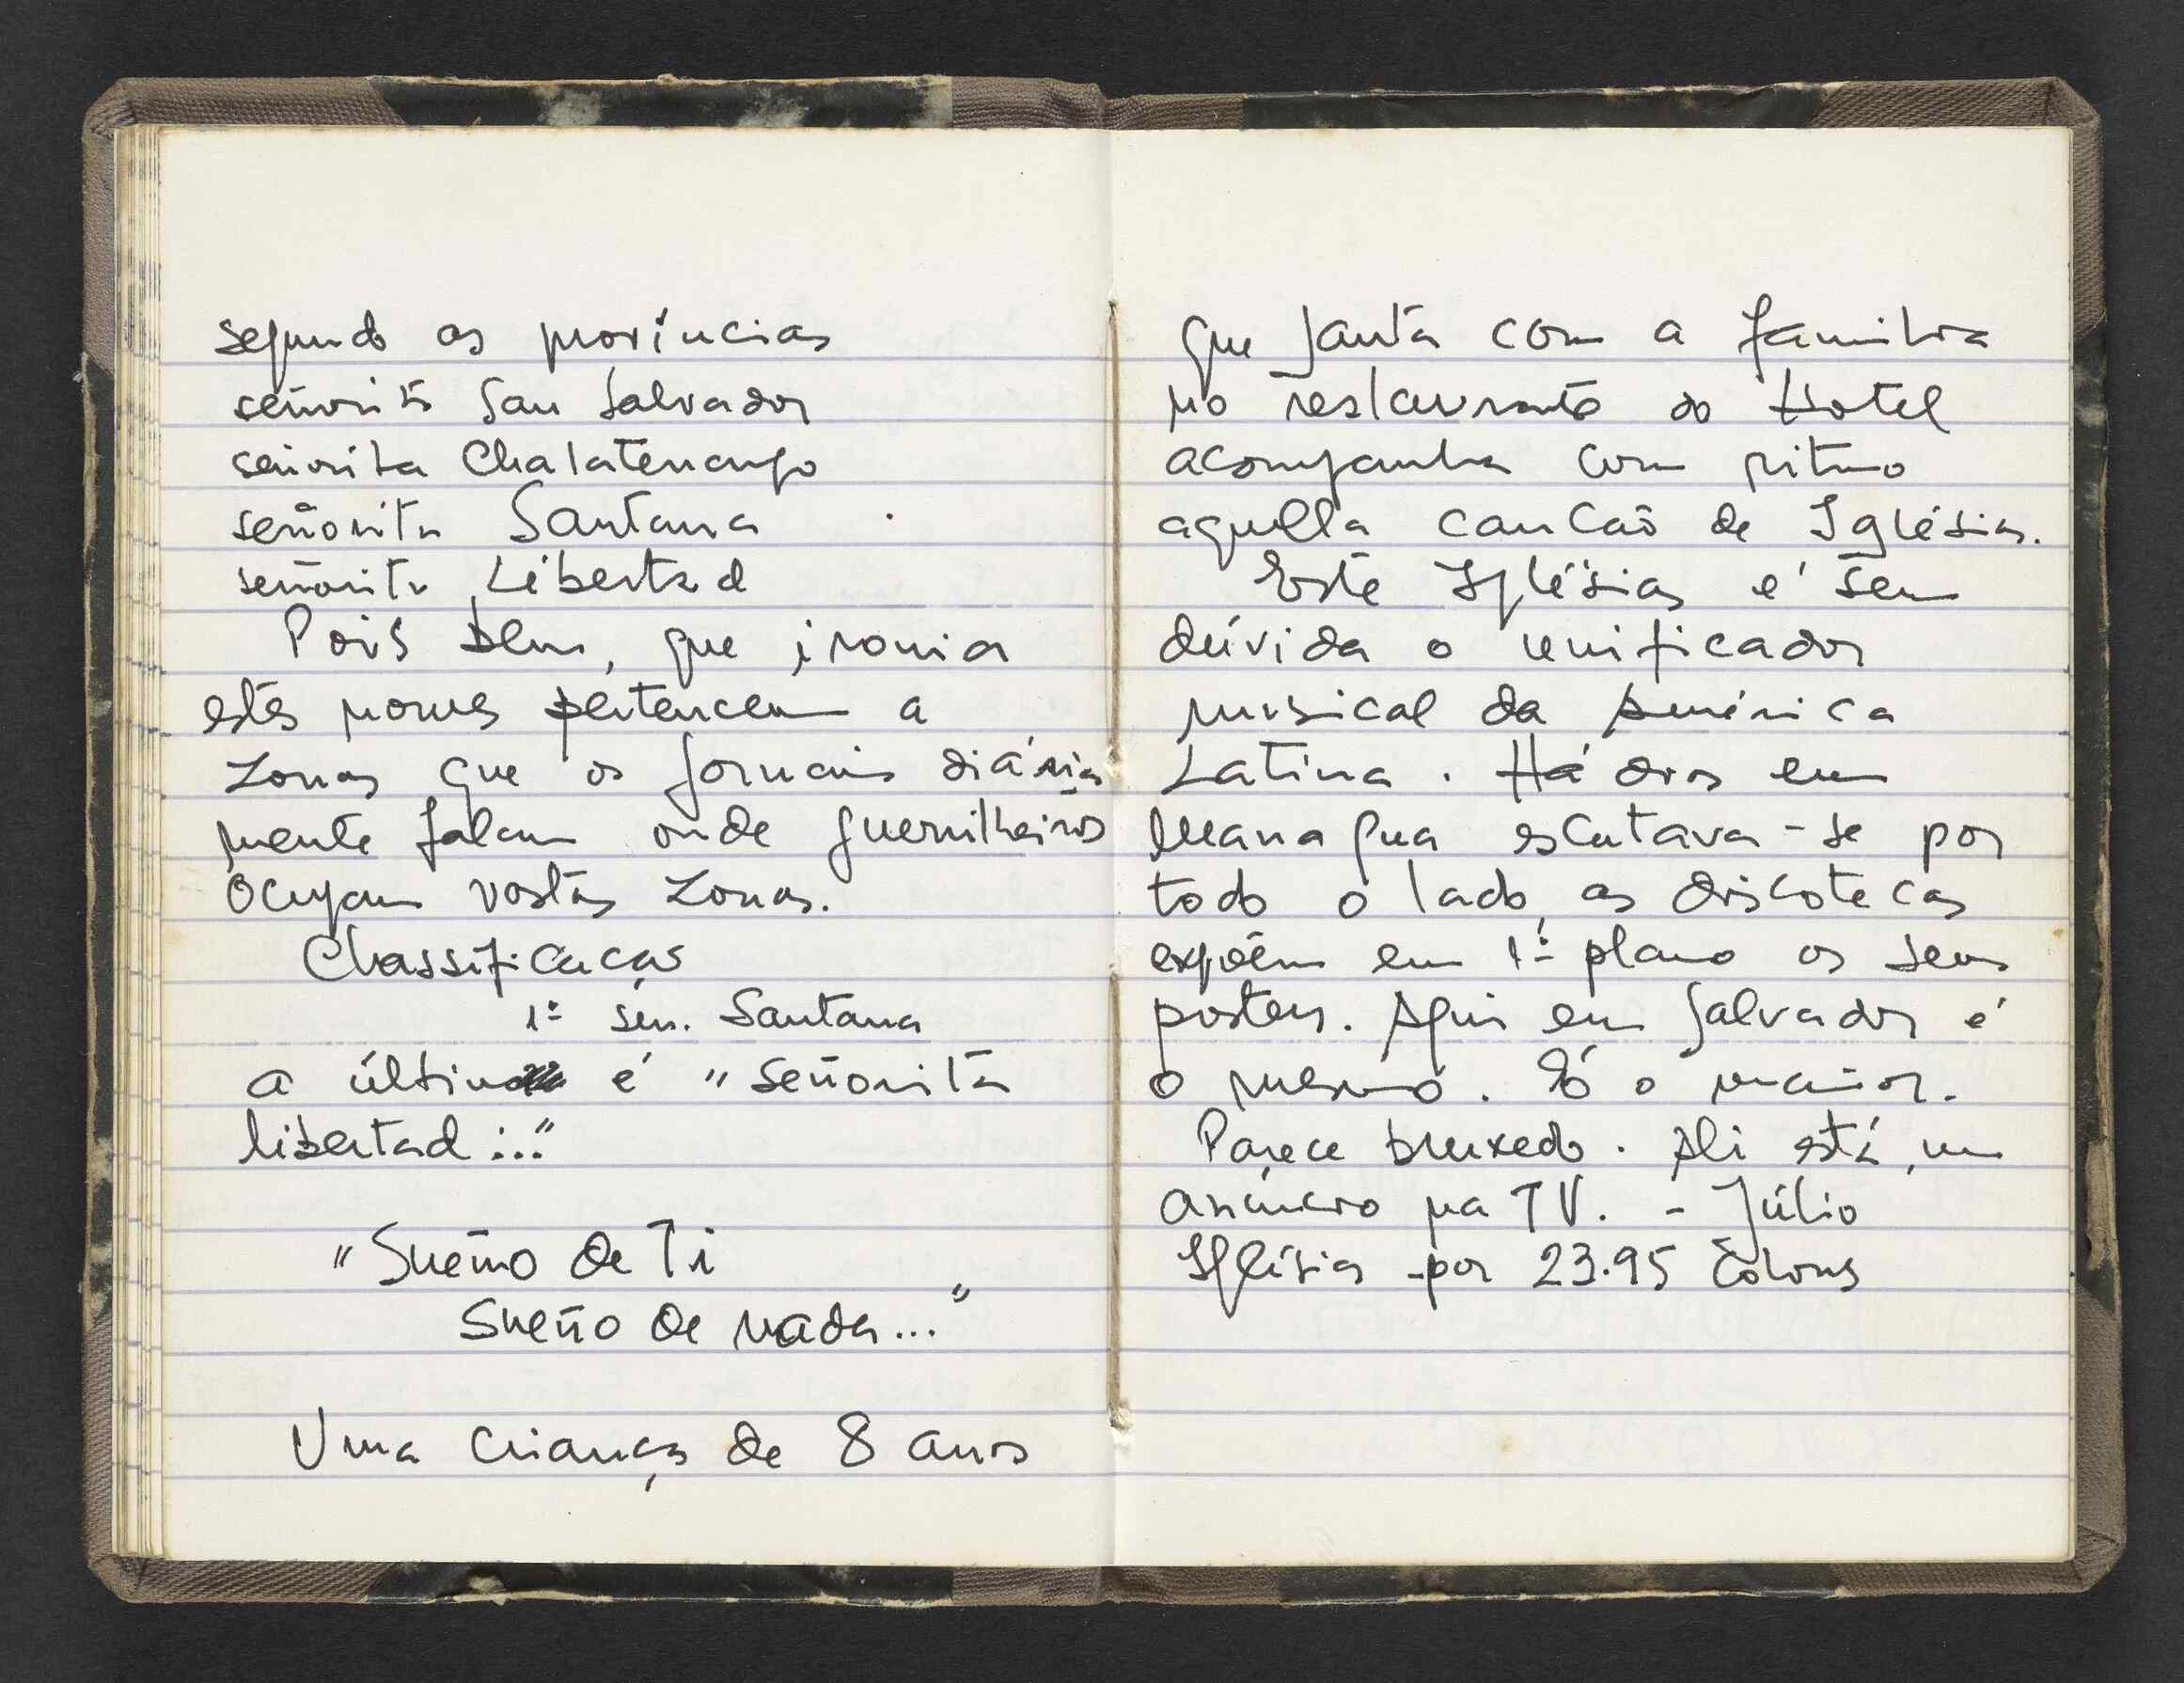 segundo as províncias
señorita San Salvador
señorita Chalatenango
señorita Santana
señorita Libertad
Pois bem, que ironia
estes nomes pertencem a
zonas que os jornais diária
mente falam onde guerrilheiros
ocupam vastas zonas.
Classificação
1ª sen. Santana
a última é "señorita
libertad..."
"Sueño de Ti
Sueño de nada..."
Uma criança de 8 anos
que janta com a família
no restaurante do Hotel
acompanha com ritmo
aquella canção de Iglésias.
Este Iglésias é sem
dúvida o unificador
musical da América
Latina. Há dias em
Managua escutava-se por
todo o lado, as discotecas
expõem em 1º plano os seus
posters. Aqui em Salvador é
o mesmo. É o maior.
Parece bruxedo. Ali está, um
anúncio na TV. - Júlio
Iglésias - por 23.95 Colones